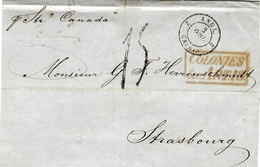 p Str "Canada"
2 ANGL. 2
3
CALAIS
COLONIES
15
Monsieur G. F. Herrenschmidt
Strasbourg